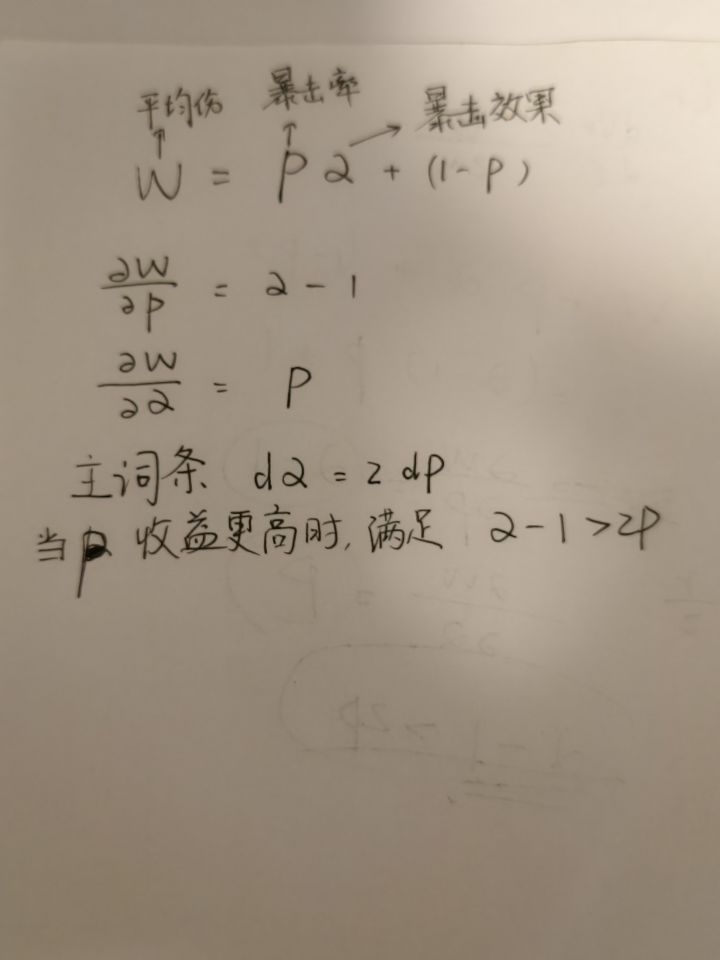 平均伤 暴击率 暴击效果
W = P α + (1-P)
∂W/∂P = α - 1
∂W/∂α = P
主词条 dα = 2 dP
当P 收益更高时, 满足 α-1>2P